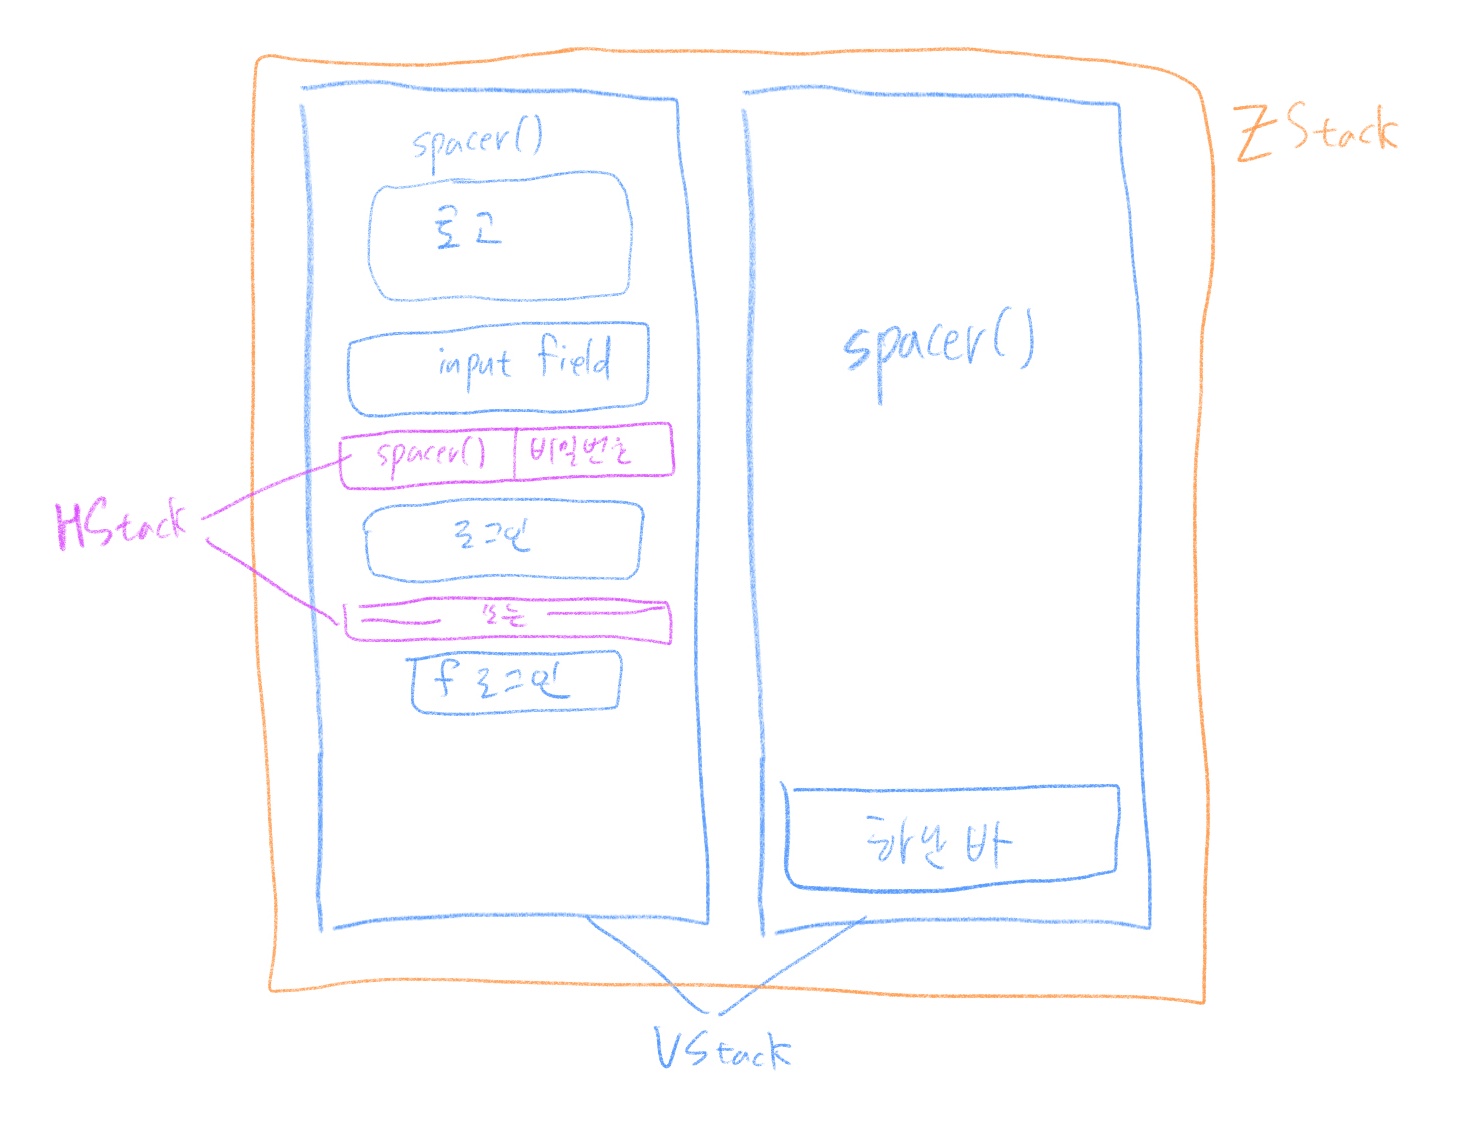 ZStack
spacer()
로고
input field
spacer() 비밀번호
HStack
로그인
또는
f 로그인
spacer()
하단 바
VStack